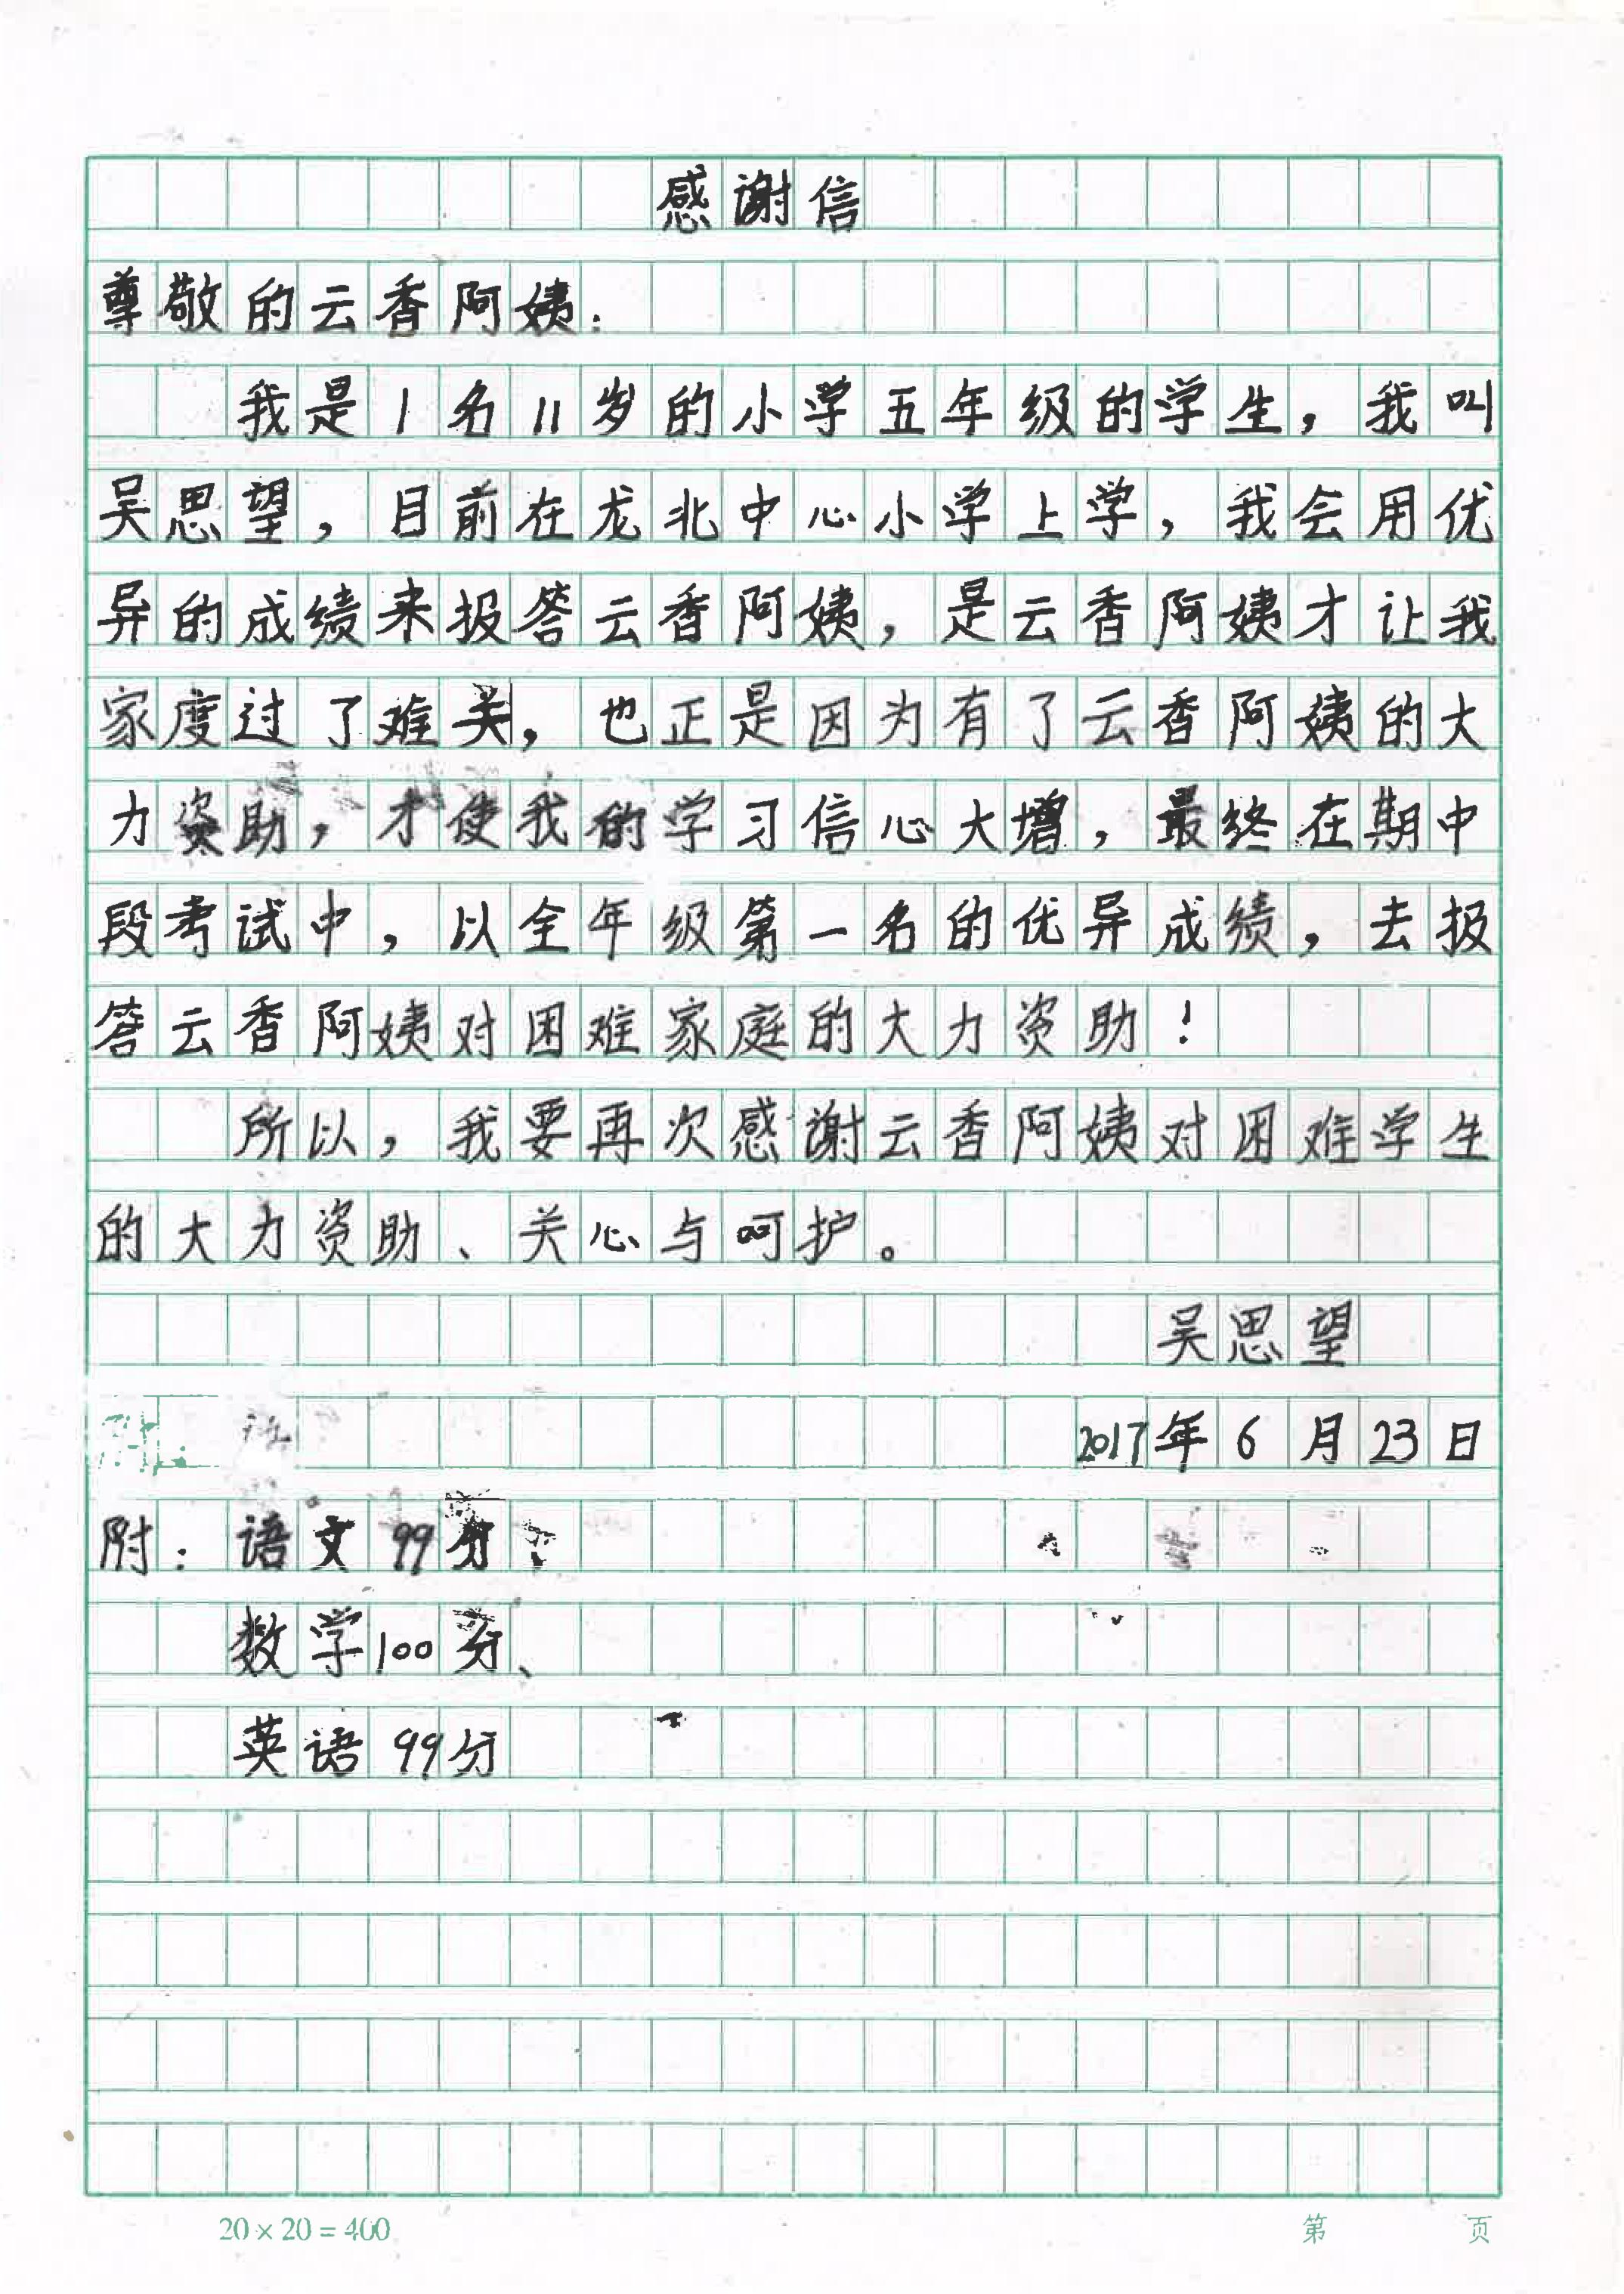 感谢信
尊敬的云香阿姨：
我是1名11岁的小学五年级的学生，我叫
吴思望，目前在龙北中心小学上学，我会用优
异的成绩来报答云香阿姨，是云香阿姨才让我
家度过了难关，也正是因为有了云香阿姨的大
力资助，才使我的学习信心大增，最终在期中
段考试中，以全年级第一名的优异成绩，去报
答云香阿姨对困难家庭的大力资助！
所以，我要再次感谢云香阿姨对困难学生
的大力资助、关心与呵护。
吴思望
2017年6月23日
附：语文99分、
数学100分、
英语99分
20×20=400 第 页